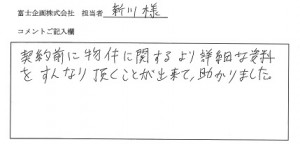 富士企画株式会社 担当者 新川様
コメントご記入欄
契約前に物件に関するより詳細な資料
をすんなり頂くことが出来て、助かりました